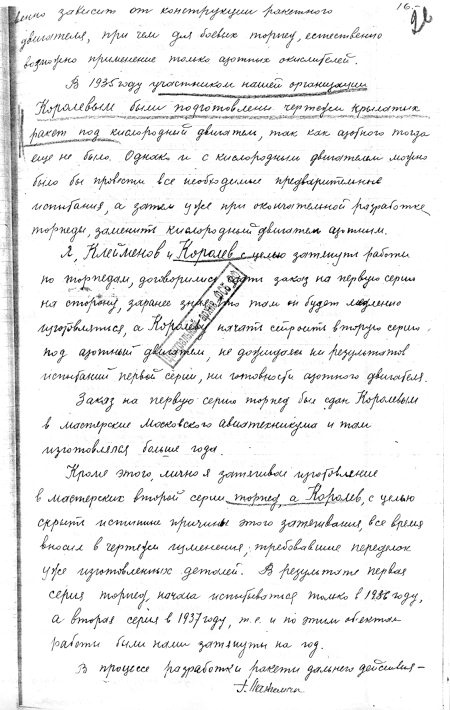 16.
26
венно зависит от конструкции ракетного
двигателя, при чем для боевых торпед, естественно
возможно применение только азотных окислителей.
В 1935 году участником нашей организации
Королевым были подготовлены чертежи крылатых
ракет под кислородный двигатель, так как азотного тогда
еще не было. Однако и с кислородным двигателем можно
было бы провести все необходимые предварительные
испытания, а затем уже при окончательной разработке
торпеды, заменить кислородный двигатель азотным.
Я, Клейменов и Королев, с целью затянуть работы
по торпедам, договорились дать заказ на первую серию
на сторону, заранее зная, что там он будет медленно
изготовляться, а Королеву начать строить вторую серию
под азотный двигатель, не дожидаясь ни результатов
испытаний первой серии, ни готовности азотного двигателя.
Заказ на первую серию торпед был сдан Королевым
в мастерские Московского Авиатехникума и там
изготовлялся больше года.
Кроме этого, лично я затягивал изготовление
в мастерских второй серии торпед, а Королев, с целью
скрыть истинные причины этого затягивания, все время
вносил в чертежи изменения, требовавшие переделок
уже изготовленных деталей. В результате первая
серия торпед начала испытываться только в 1936 году,
а вторая серия в 1937 году, т.е. и по этим объектам
работы были нами затянуты на год.
В процессе разработки ракеты дальнего действия –